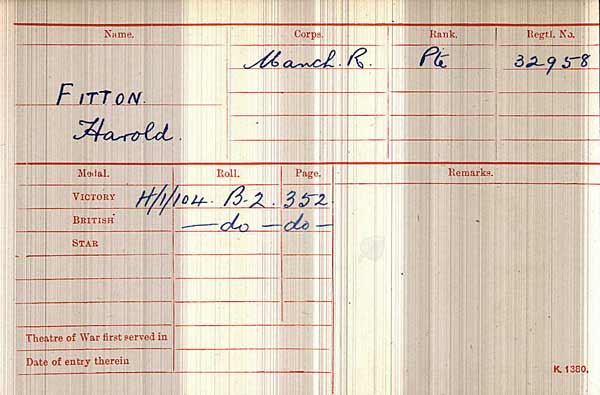 Name. Corps. Rank. Regtl. No.
Manch. R. Pte 32958
FITTON.
Harold.
Medal. Roll. Page. Remarks.
VICTORY H/1/104. B-2. 352
BRITISH — do — do —
STAR
Theatre of War first served in
Date of entry therein
K. 1380.